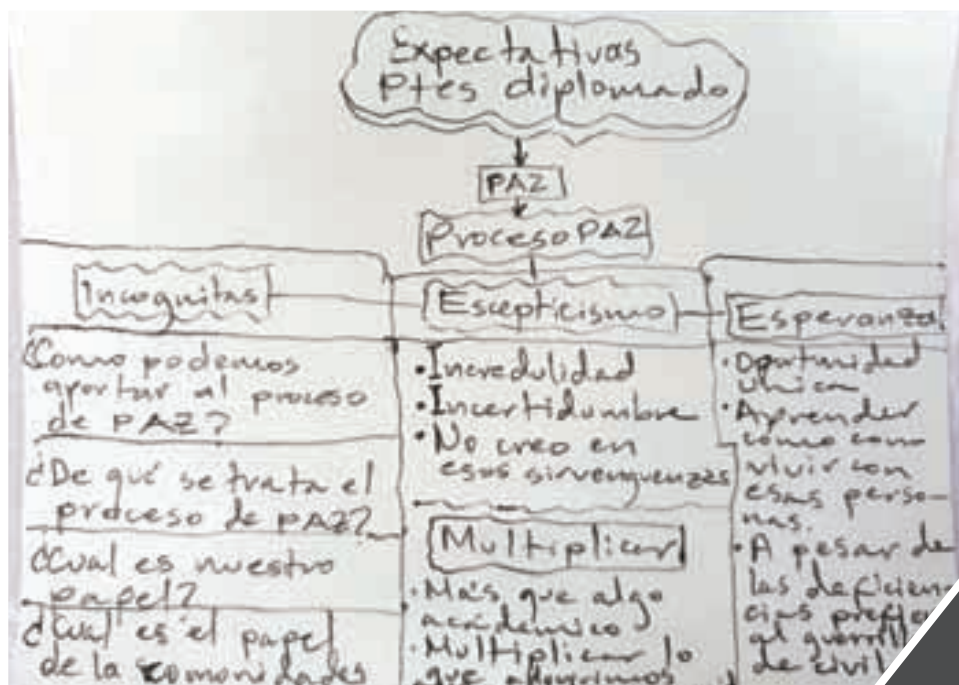 Expectativas
Ptes diplomado
PAZ
Proceso PAZ
Incognitas
¿Como podemos
aportar al proceso
de PAZ?
¿De qué se trata el
proceso de PAZ?
¿Cual es nuestro
papel?
¿Cual es el papel
de la comonidades
Escepticismo
• Incredulidad
• Incertidumbre
• No creo en
esos sirvenguenzas
Multiplicar
• Más que algo
académico
• Multiplicar lo
que
Esperanza
• Oportunidad
unica
• Aprender
como con
vivir con
esas perso-
nas.
• A pesar de
las deficien
cias
al
de civil